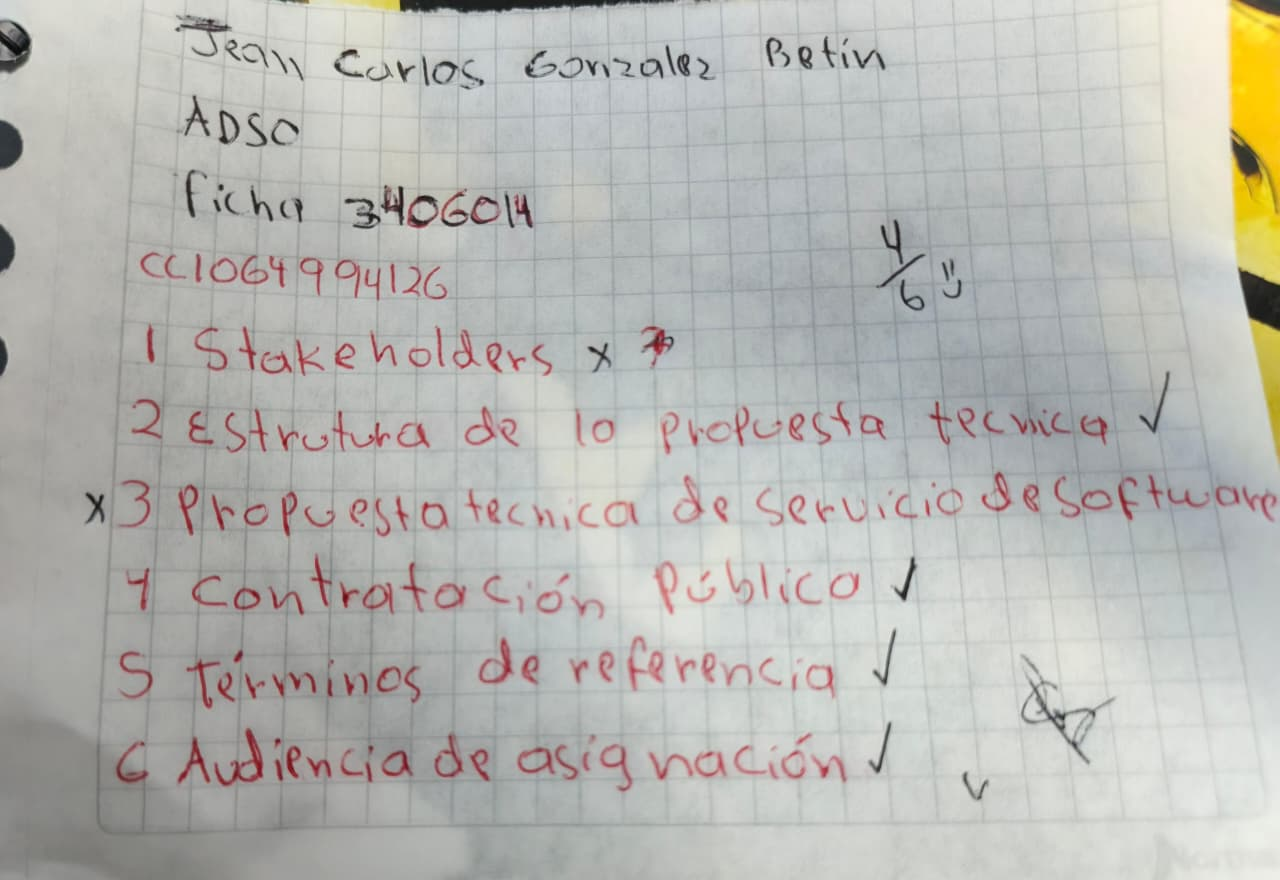 Jean Carlos Gonzalez Betin
ADSO
Ficha 3406014
CC1064994126
4/6
1 Stakeholders x
2 Estrutura de la propuesta tecnica ✓
x 3 Propuesta tecnica de servicio de software
4 Contratación Público ✓
5 términos de referencia ✓
6 Audiencia de asignación ✓